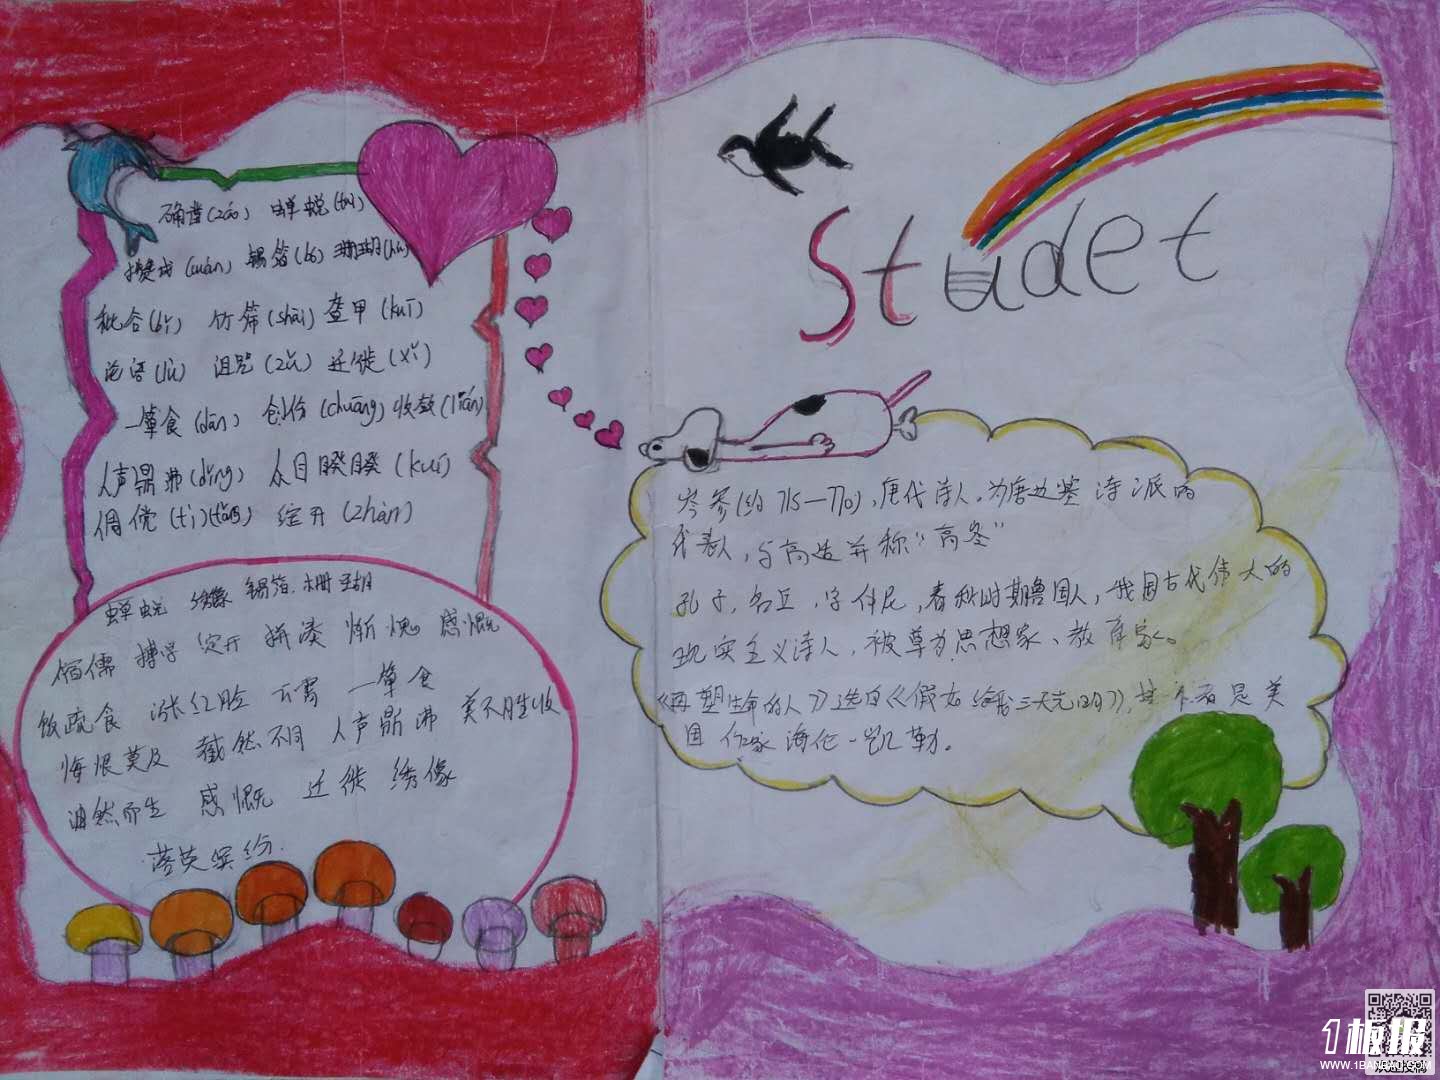 确凿(záo) 蝉蜕(tuì)
攒成(cuán) 锡箔(bó) 珊瑚(hú)
秕谷(bǐ) 竹筛(shāi) 盔甲(kuī)
论语(lún) 诅咒(zǔ) 迁徙(xǐ)
一箪食(dān) 创伤(chuāng) 收敛(liǎn)
人声鼎沸(dǐng) 众目睽睽(kuí)
倜傥(tì)(tǎng) 绽开(zhàn)
蝉蜕 绣像 锡箔 珊瑚
宿儒 搏学 绽开 拼凑 惭愧 感慨
饭疏食 涨红脸 一箪食
悔恨莫及 截然不同 人声鼎沸 美不胜收
油然而生 感慨 迁徙 绣像
落英缤纷.
Studet
岑参(约715—770),唐代诗人,为唐边塞诗派的
代表人,与高适并称"高岑"
孔子,名丘,字仲尼,春秋时期鲁国人,我国古代伟大的
现实主义诗人,被尊为思想家、教育家。
《再塑生命的人》选自《假如给我三天光明》,其作者是美
国作家海伦-凯勒。
1板报
WWW.1BANBAO.COM
欢迎投稿